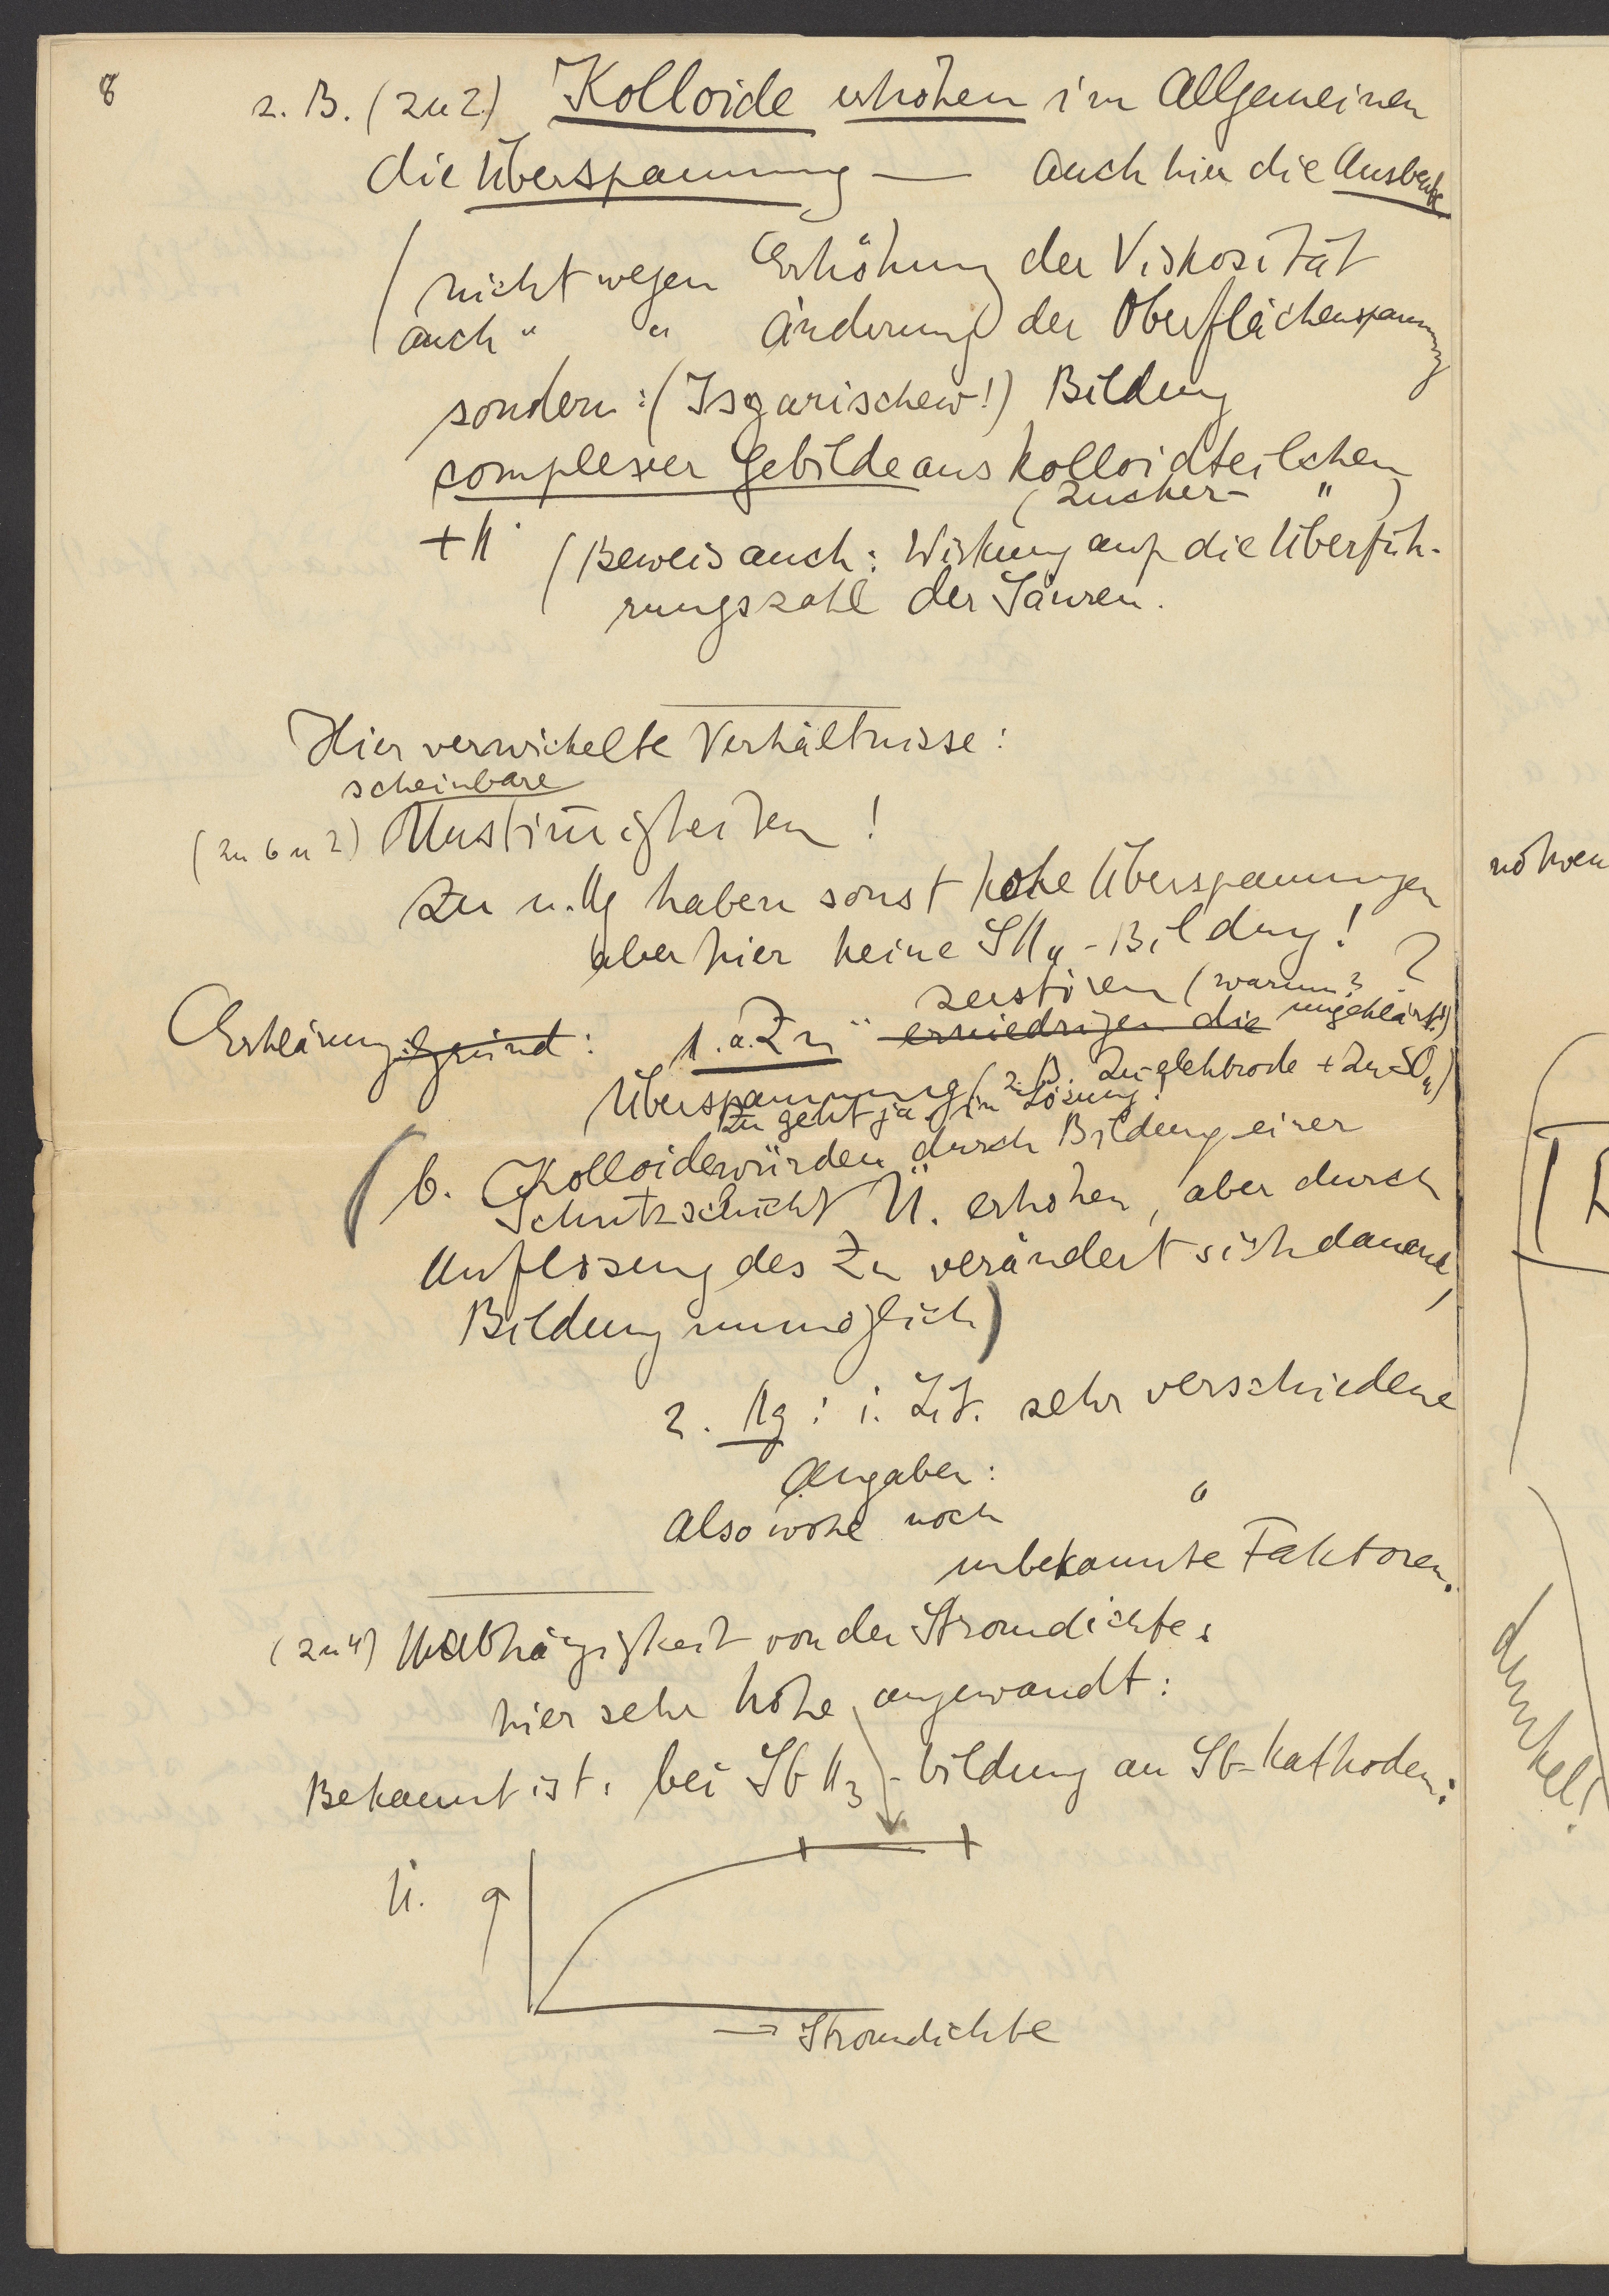 8
z. B. (zu 2) Kolloide erhöhen im Allgemeinen
die Überspannung — auch hier die Ausbeute
(nicht wegen Erhöhung der Viskosität
auch " " Änderung der Oberflächenspannung
sondern: (Isgarischew!) Bildung
complexer Gebilde aus Kolloidteilchen
(Zucker- " )
+ H· (Beweis auch: Wirkung auf die Überfüh-
rungszahl der Säuren.
Hier verwickelte Verhältnisse:
scheinbare
(zu 6 u 2) Unstim̅igkeiten!
Zn u. Hg haben sonst hohe Überspannungen
aber hier keine SH4-Bildung!
zerstören (warum? ?
Erklärungsgründe: 1. a. Zn¨ erniedrigen die ungeklärt!)
Überspannung (z. B. Zn-elektrode + ZnSO4)
Zn geht ja in Lösung!
(b. Kolloide würden durch Bildung einer
Schutzschicht Ü. erhöhen, aber durch
Auflösung des Zn verändert sich dauernd,
Bildung unmöglich)
2. Hg: i. Lit. sehr verschiedene
Angaben:
Also wohl noch "
unbekannte Faktoren.
(zu 4) Unabhängigkeit von der Stromdichte:
hier sehr hohe angewandt:
Bekannt ist: bei SbH3-bildung an Sb-Kathoden:
Ü.
→ Stromdichte
dunkel!